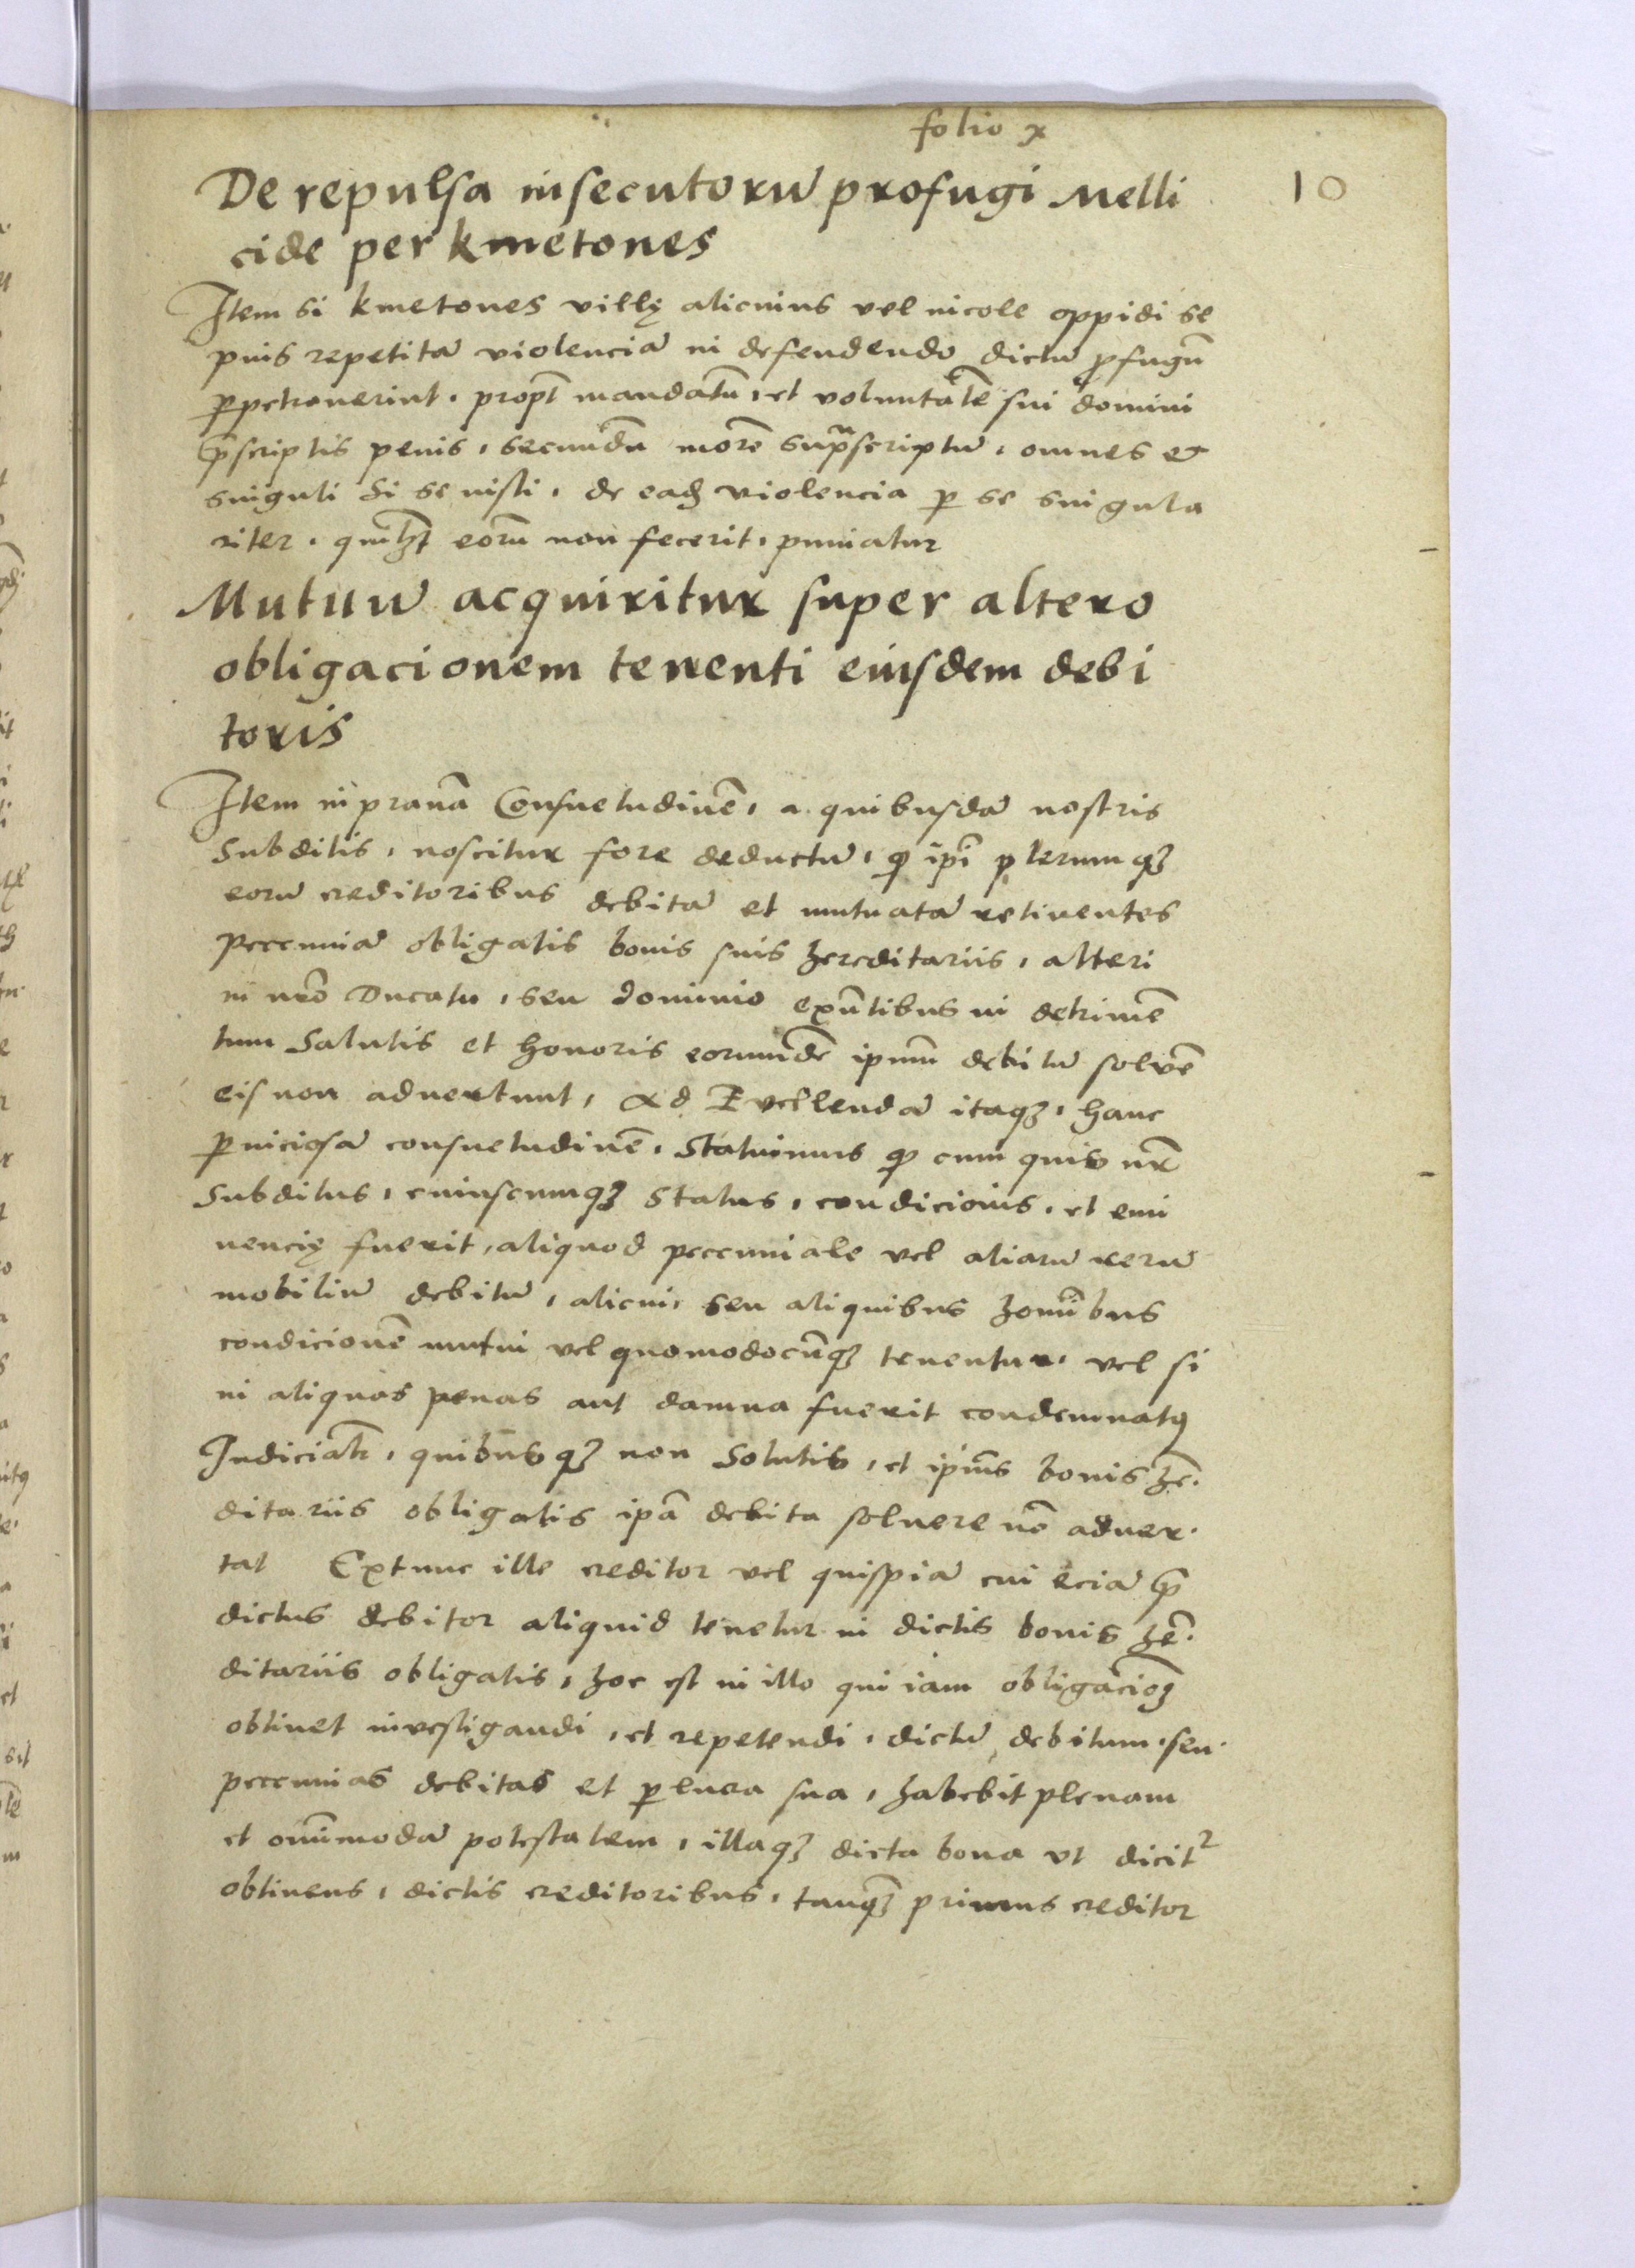 folio x
10
De repulsa insecutorū profugi Melli
cide per kmetones
Item si kmetones villę alicuius vel incole oppidi se
pius repetitā violenciā in defendendo dictū ꝓfugū
ꝑpetrauerint, propt̄ mandatū, et voluntatē sui domini
p̄scriptis penis, secundū morē sup̄ascriptū, omnes et
singuli si se iusti, de eadꝫ violencia ꝑ se singula
riter, quilꝫt eorū non fecerit, puniatur
Mutuū acquiritur super altero
obligacionem tenenti eiusdem debi
toris
Item in prauā Consuetudinē, a quibusdā nostris
Subditis, noscitur fore deductū, ꝙ ip̄i plerumqꝫ
eorū creditoribus debitā et mutuatā retinentes
Peccuniā obligatis bonis suis hereditariis, alteri
in nr̄o Ducatu, seu dominio exn̄tibus in detrimē
tum Salutis et honoris eorumdē ipm̄ debitū soluē
eis non aduertunt, Ad Euellendā itaqꝫ, hanc
ꝑniciosā consuetudinē, Statuimus ꝙ cum quis nr̄
Subditus, cuiuscumqꝫ Status, condicionis, et emi
nencię fuerit, aliquod peccuniale vel aliarū rerū
mobiliū debitū, alicui, seu aliquibus homībus
condicionē mutui vel quomodocūqꝫ tenentur, vel si
in aliquas penas aut damna fuerit condemnatꝰ
Iudicialr̄, quibusqꝫ non Solutis, et ip̄ius bonis hē.
ditariis obligatis ip̄a debita soluere nō aduer.
tat Extunc ille creditor vel quispiā cui eciā p̄
dictus debitor aliquid tenetur in dictis bonis hē.
ditariis obligatis, hoc est in illo qui iam obligacionꝫ
obtinet inuestigandi, et repetendi, dictū debitum, seu.
peccunias debitas et ꝑ lucra sua, habebit plenam
et omīmodā potestatem, illaqꝫ dicta bona vt dicit²
obtinens, dictis creditoribus, tanqꝫ primus creditor